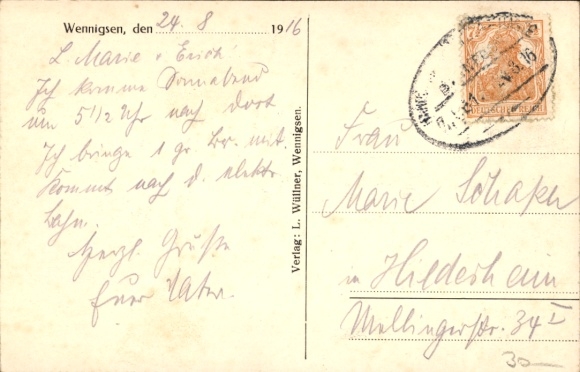 Wennigsen, den 24. 8 1916
L. Marie u Erich
Ich komme Sonnabend
um 5 1/2 Uhr nach dort
Ich bringe 1 gr. mit.
Kommt nach d. elektr.
Bahn.
Herzl. Grüße
Euer Vater.
Verlag: L. Wüllner, Wennigsen.
7½
DEUTSCHES REICH
Frau
Marie Schaper
in Hildesheim
Wollingerstr. 34 I
30